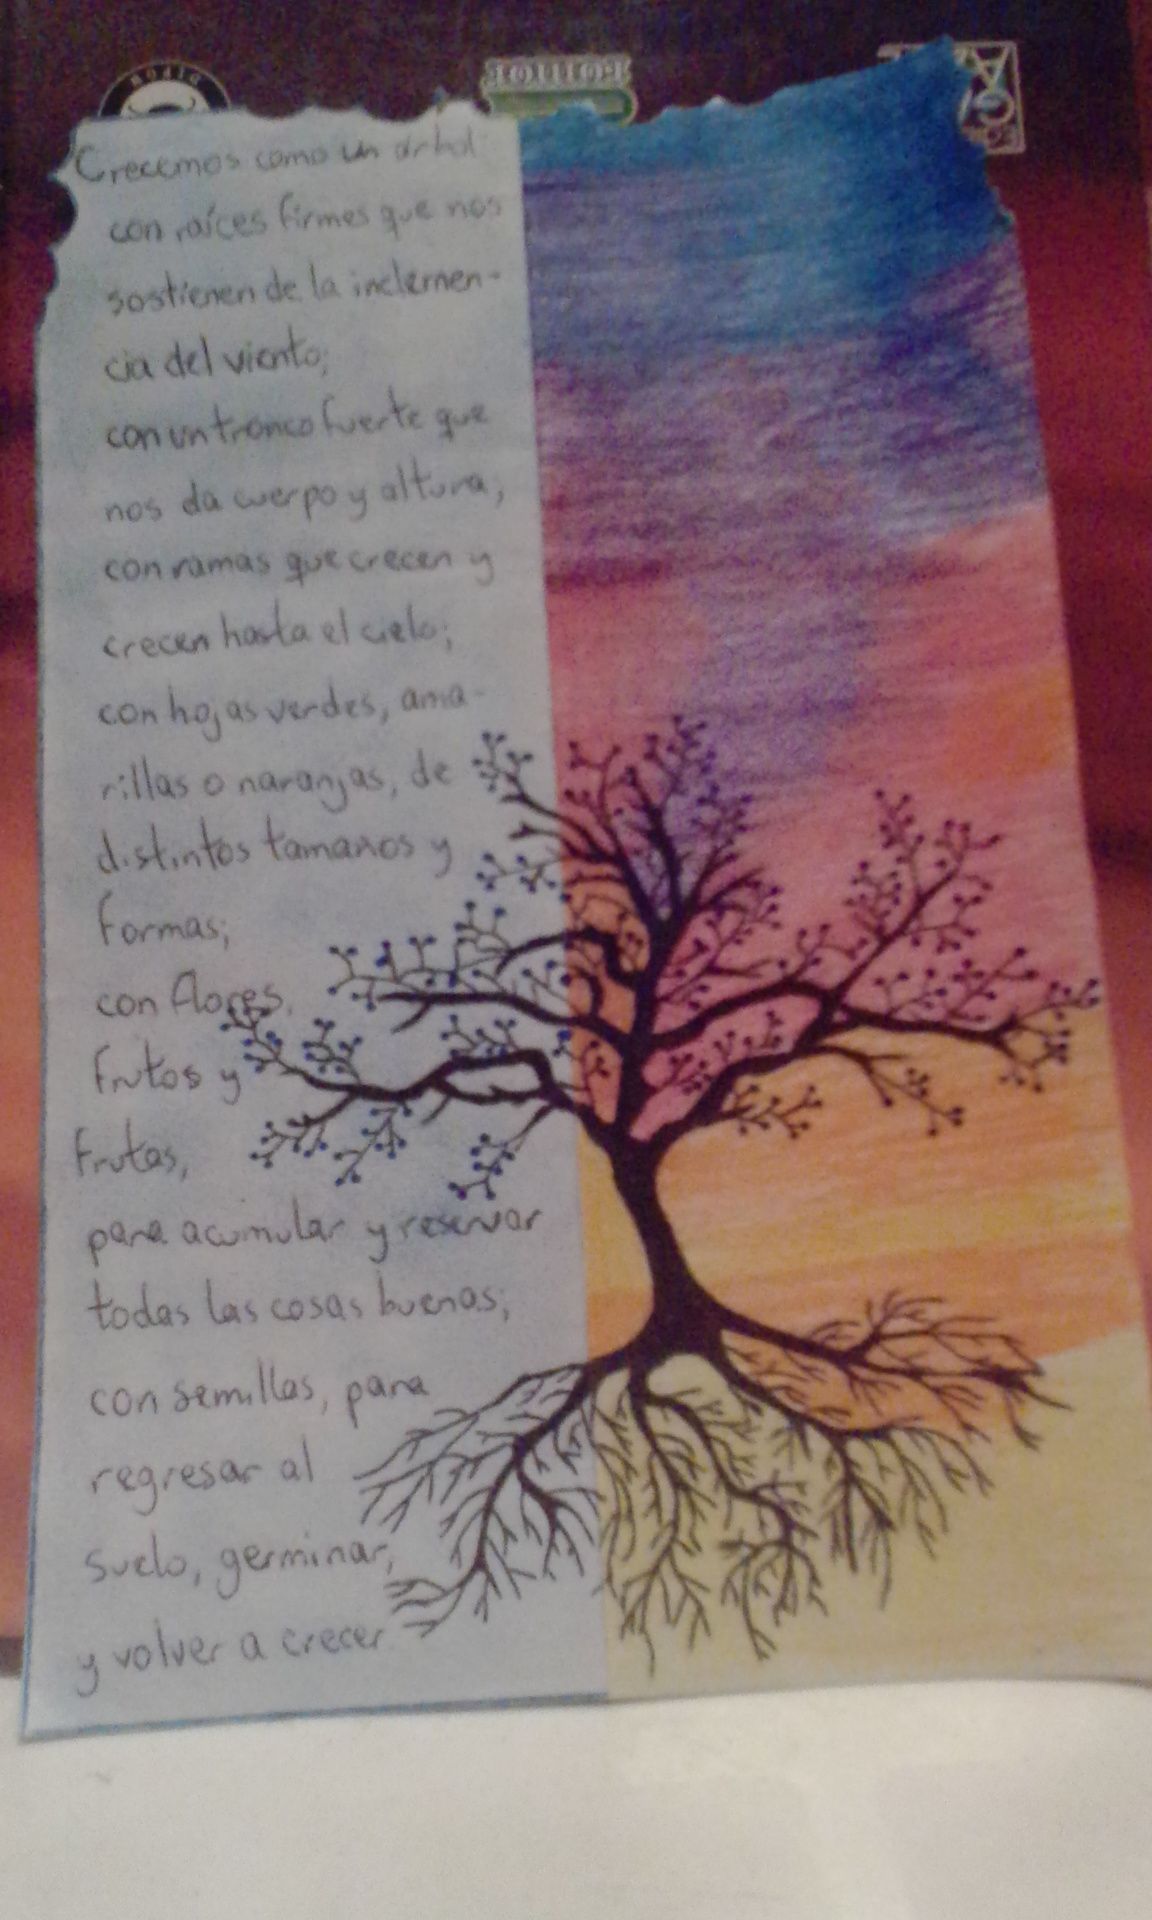 Crecemos como un árbol
con raíces firmes que nos
sostienen de la inclemen-
cia del viento;
con un tronco fuerte que
nos da cuerpo y altura;
con ramas que crecen y
crecen hasta el cielo;
con hojas verdes, ama-
rillas o naranjas, de
distintos tamanos y
formas;
con flores,
frutos y
frutas,
para acumular y reservar
todas las cosas buenas;
con semillas, para
regresar al
suelo, germinar,
y volver a crecer